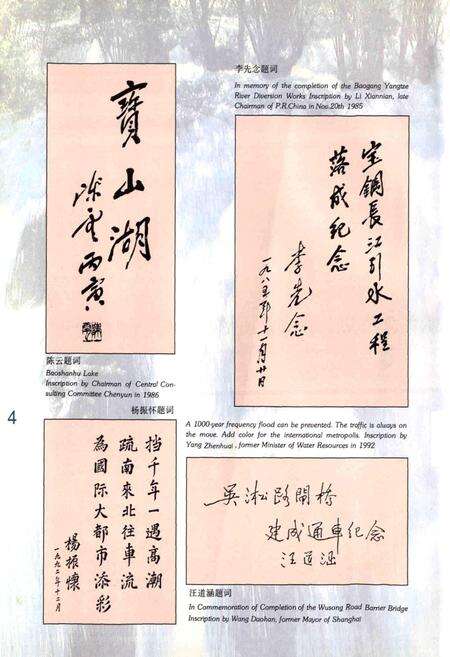 寶山湖
陈云丙寅
陈云题词
Baoshanhu Lake
Inscription by Chairman of Central Con-
sulting Committee Chenyun in 1986
李先念题词
In memory of the completion of the Baogang Yangtze
River Diversion Works Inscription by Li Xiannian, late
Chairman of P.R.China in Nov.20th 1985
宝钢長江引水工程
落成纪念
李先念
一九八五年十一月廿日
4
杨振怀题词
A 1000-year frequency flood can be presented. The traffic is always on
the move. Add color for the international metropolis. Inscription by
Yang Zhenhuai , former Minister of Water Resources in 1992
挡千年一遇高潮
疏南來北往車流
為國际大都市添彩
楊振懷
一九九二年十二月
吴淞路閘橋
建成通車纪念
汪道涵
汪道涵题词
In Commemoration of Completion of the Wusong Road Barrier Bridge
Inscription by Wang Daohan, former Mayor of Shanghai